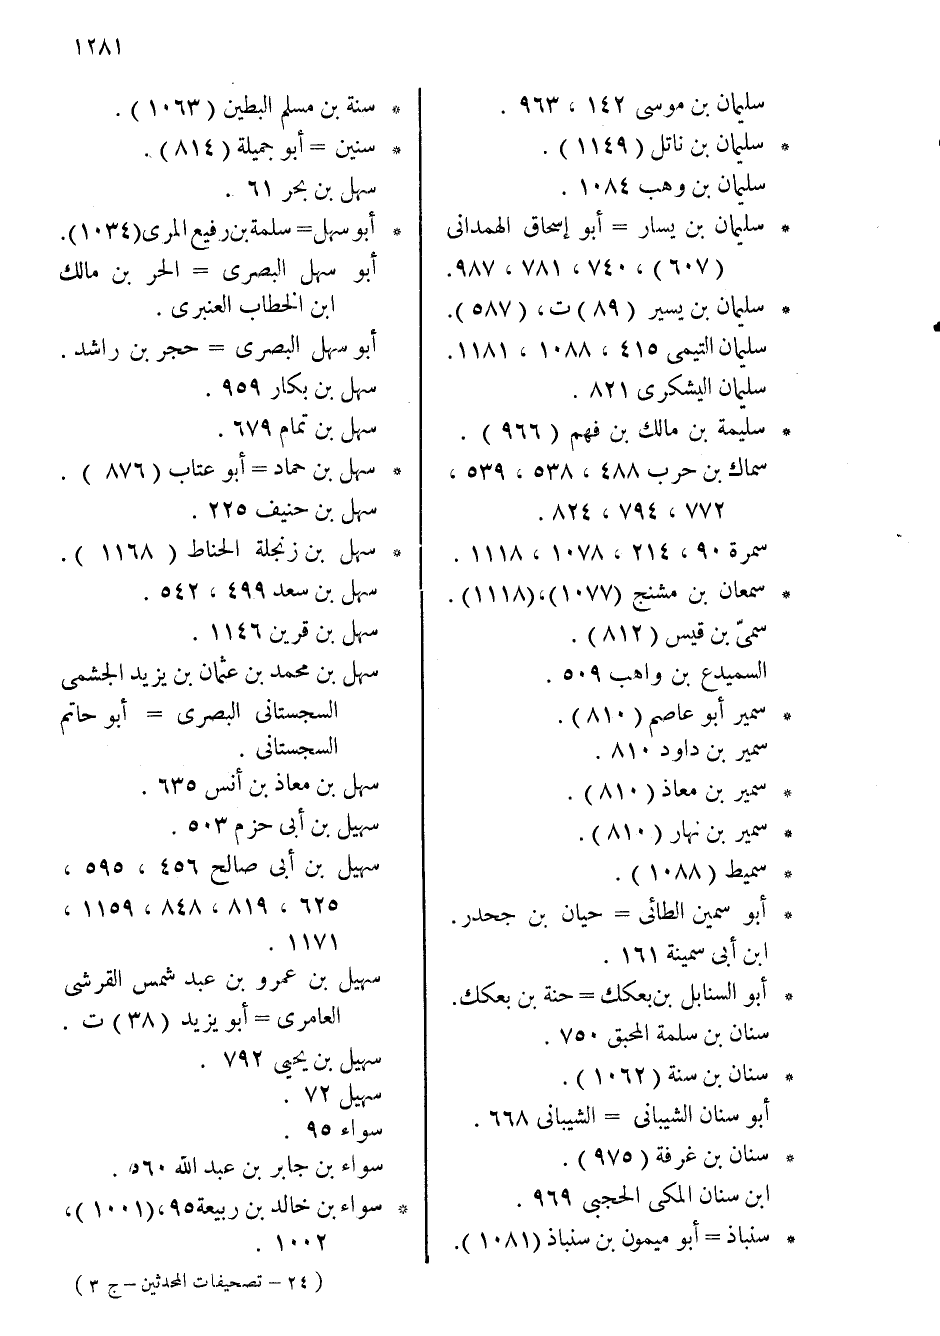 ١٢٨١
سليمان بن موسى ١٤٢ ، ٩٦٣ .
* سليمان بن ناتل ( ١١٤٩ ) .
سليمان بن وهب ١٠٨٤ .
* سليمان بن يسار = أبو إسحاق الهمدانى
( ٦٠٧ ) ، ٧٤٠ ، ٧٨١ ، ٩٨٧.
* سليمان بن يسير ( ٨٩ ) ت ، ( ٥٨٧ ).
سليمان التيمى ٤١٥ ، ١٠٨٨ ، ١١٨١.
سليمان اليشكرى ٨٢١ .
* سليمة بن مالك بن فهم ( ٩٦٦ ) .
سماك بن حرب ٤٨٨ ، ٥٣٨ ، ٥٣٩ ،
٧٧٢ ، ٧٩٤ ، ٨٢٤ .
سمرة ٩٠ ، ٢١٤ ، ١٠٧٨ ، ١١١٨ .
* سمعان بن مشنج (١٠٧٧)،(١١١٨).
سمىّ بن قيس ( ٨١٢ ) .
السميدع بن واهب ٥٠٩ .
* سمير أبو عاصم ( ٨١٠ ) .
سمير بن داود ٨١٠ .
* سمير بن معاذ ( ٨١٠ ) .
* سمير بن نهار ( ٨١٠ ) .
* سميط ( ١٠٨٨ ) .
* أبو سمين الطائى = حيان بن جحدر.
ابن أبى سمينة ١٦١ .
* أبو السنابل بن بعكك = حنة بن بعكك.
سنان بن سلمة المحبق ٧٥٠ .
* سنان بن سنة ( ١٠٦٢ ) .
أبو سنان الشيبانى = الشيبانى ٦٦٨ .
* سنان بن غرفة ( ٩٧٥ ) .
ابن سنان المكى الحجبى ٩٦٩ .
* سنباذ = أبو ميمون بن سنباذ (١٠٨١).
* سنة بن مسلم البطين ( ١٠٦٣ ) .
* سنين = أبو جميلة ( ٨١٤ ) .
سهل بن بحر ٦١ .
* أبو سهل = سلمة بن رفيع المرى (١٠٣٤).
أبو سهل البصرى = الحر بن مالك
ابن الخطاب العنبرى .
أبو سهل البصرى = حجر بن راشد .
سهل بن بكار ٩٥٩ .
سهل بن تمام ٦٧٩ .
* سهل بن حماد = أبو عتاب ( ٨٧٦ ) .
سهل بن حنيف ٢٢٥ .
* سهل بن زنجلة الحناط ( ١١٦٨ ) .
سهل بن سعد ٤٩٩ ، ٥٤٢ .
سهل بن قرين ١١٤٦ .
سهل بن محمد بن عثمان بن يزيد الجشمى
السجستانى البصرى = أبو حاتم
السجستانى .
سهل بن معاذ بن أنس ٦٣٥ .
سهيل بن أبى حزم ٥٠٣ .
سهيل بن أبى صالح ٤٥٦ ، ٥٩٥ ،
٦٢٥ ، ٨١٩ ، ٨٤٨ ، ١١٥٩ ،
١١٧١ .
سهيل بن عمرو بن عبد شمس القرشى
العامرى = أبو يزيد ( ٣٨ ) ت .
سهيل بن يحيى ٧٩٢ .
سهيل ٧٢ .
سواء ٩٥ .
سواء بن جابر بن عبد الله ٥٦٠ .
* سواء بن خالد بن ربيعة ٩٥، (١٠٠١)،
١٠٠٢ .
( ٢٤ – تصحيفات المحدثين – ج ٣ )